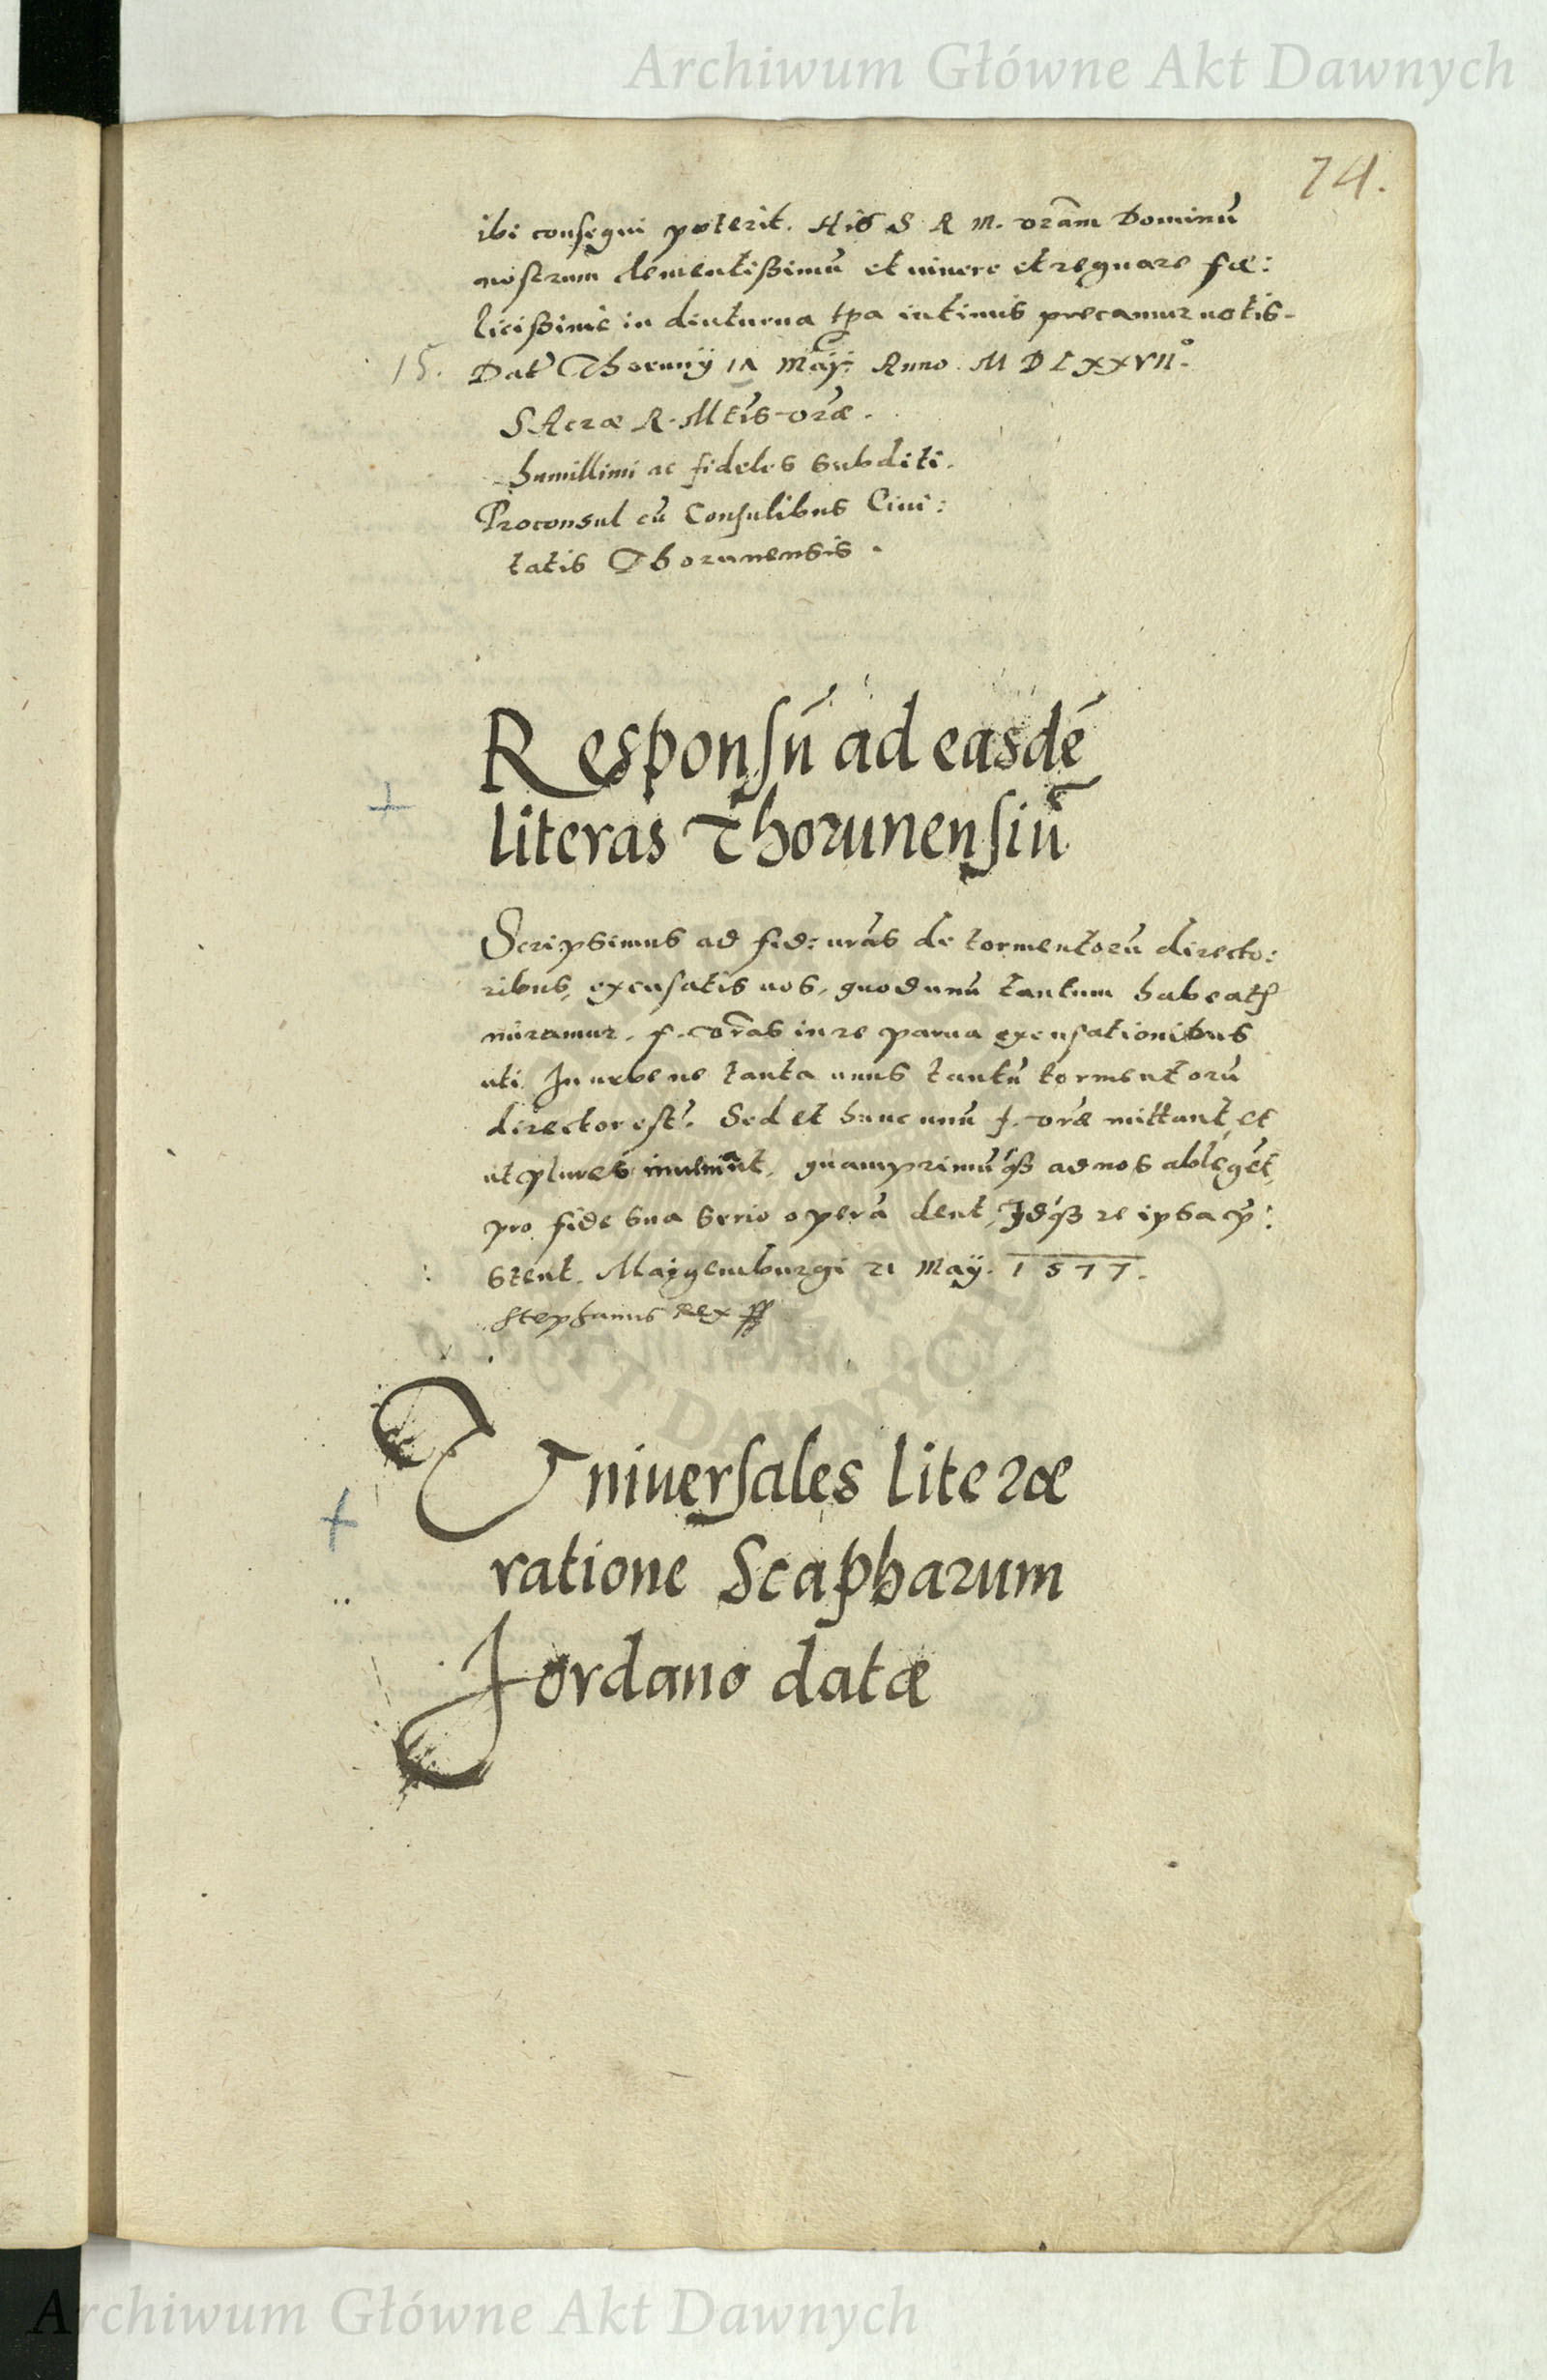 Archiwum Główne Akt Dawnych
74.
ibi consequi poterit. His S R M. vrãm Dominũ
nostrum clementißimũ et uiuere et regnare fæ:
licißime in diuturna tpa intimis precamur uotis.
15. Dat Thoruny Maÿ: Anno. M D LXXVII°.
SAcræ R. Mtis vræ.
humillimi ac fideles subditi.
Proconsul cũ Consulibus Ciui:
tatis Thorunensis.
Responsũ ad easdẽ
literas Thorunensiũ
Scripsimus ad fid: uras de tormentorũ directo:
ribus, excusatis uos, quod unũ tantum habeatis
miramur. f. vras in re parua excusationibus
uti. In urbe ne tanta unus tantũ tormentorũ
director est? Sed et hunc unũ f. vræ mittant, et
ut plures inueniant, quamprimũqȝ ad nos ablegẽt,
pro fide sua serio operã dent, Idqȝ re ipsa p̃:
stent. Maÿgemburgi 21 Maÿ. 1577.
Stephanus Rex
Vniuersales literæ
ratione Scapharum
Jordano datæ
AKT DAWNYCH
Archiwum Główne Akt Dawnych